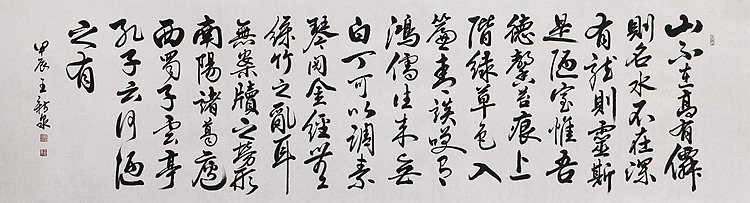 山不在高有僊
則名水不在深
有龍則靈斯
是陋室惟吾
德馨苔痕上
階緑草色入
簾青談笑有
鴻儒往來無
白丁可以調素
琴閱金經無
絲竹之亂耳
無案牘之勞形
南陽諸葛廬
西蜀子雲亭
孔子云何陋
之有
甲辰王新泉